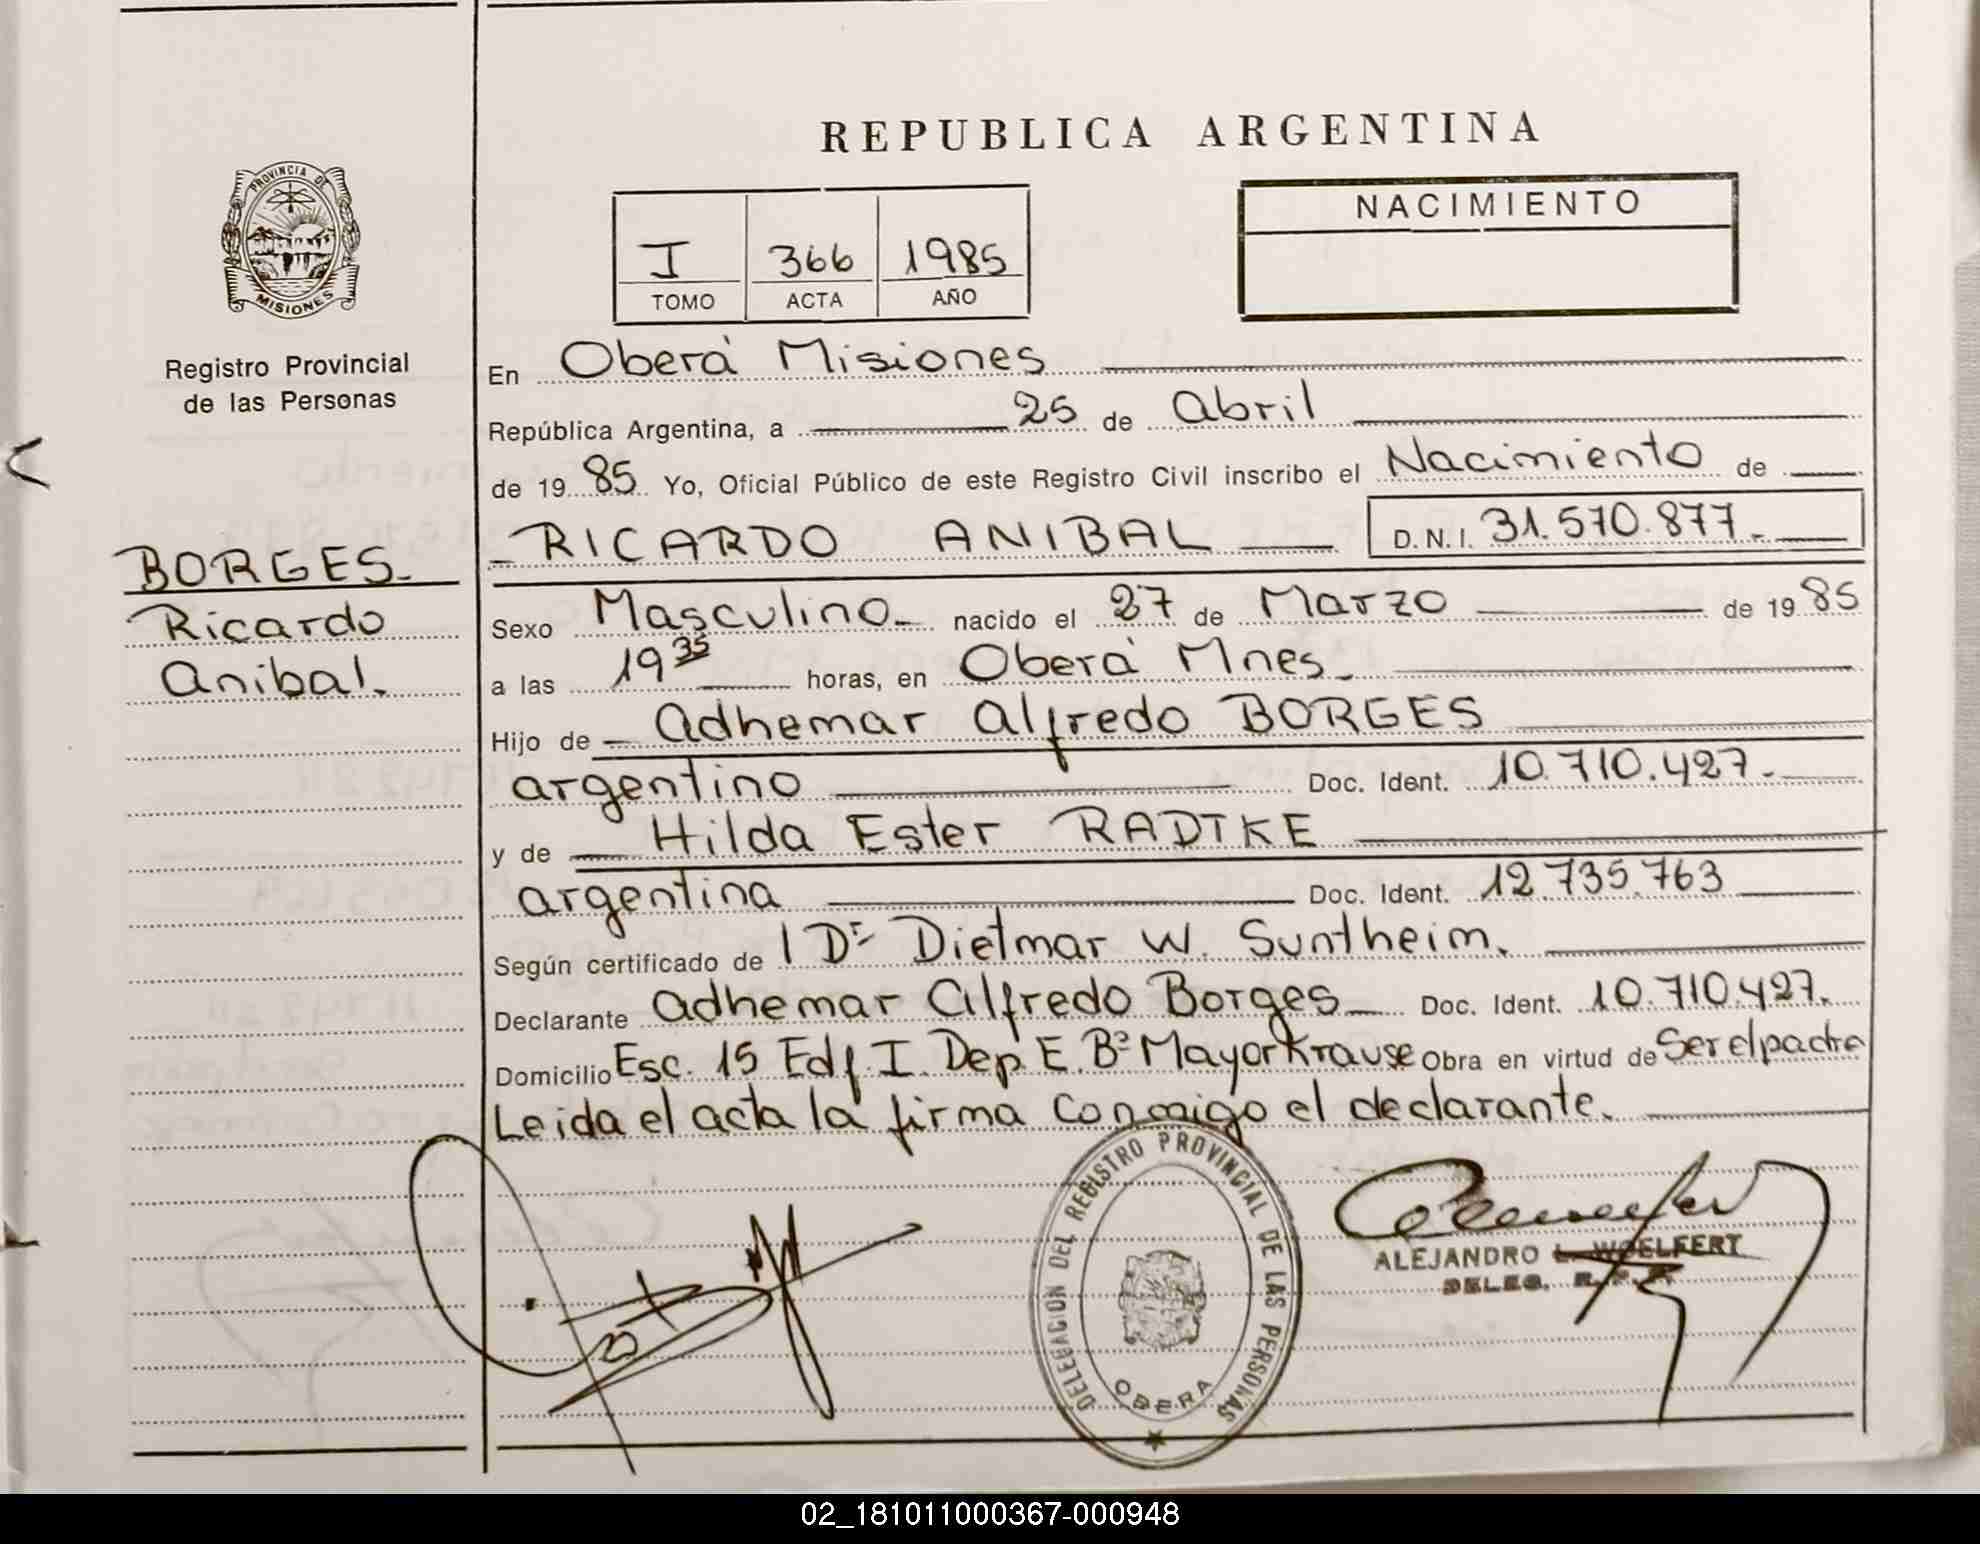 REPUBLICA ARGENTINA
PROVINCIA DE
MISIONES
Registro Provincial
de las Personas
I 366 1985
TOMO ACTA AÑO
NACIMIENTO
En Oberá Misiones
República Argentina, a 25 de Abril
de 1985 Yo, Oficial Público de este Registro Civil inscribo el Nacimiento de
RICARDO ANIBAL D.N.I. 31.570.877.-
BORGES
Ricardo
Anibal.
Sexo Masculino nacido el 27 de Marzo de 1985
a las 19 35 horas, en Oberá Mnes.
Hijo de Adhemar Alfredo BORGES
argentino Doc. Ident. 10.710.427.-
y de Hilda Ester RADTKE
argentina Doc. Ident. 12.735.763
Según certificado de l Dr Dietmar W. Suntheim.
Declarante Adhemar Alfredo Borges Doc. Ident. 10.710.427.
Domicilio Esc. 15 Edf I. Dep E. Bº Mayor Krause Obra en virtud de Ser el padre
Leida el acta la firma conmigo el declarante.
DELEGACION DEL REGISTRO PROVINCIAL DE LAS PERSONAS
OBERA
ALEJANDRO L. WOELFERT
DELEG. R.P.P.
02_181011000367-000948